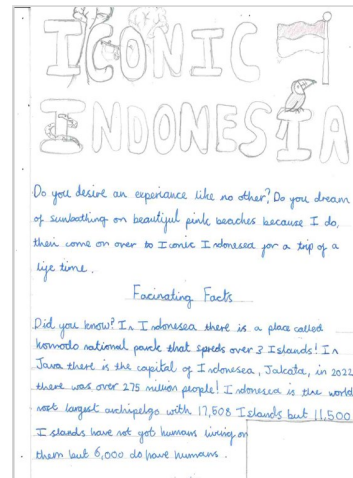 ICONIC
INDONESIA
Do you desire an experiance like no other? Do you dream
of sunbathing on beautiful pink beaches because I do,
then come on over to Iconic Indonesea for a trip of a
life time.
Facinating Facts
Did you know? In Indonesea there is a place called
komodo national parck that spreds over 3 Islands! In
Java there is the capital of Indonesea, Jakata, in 2022
there was over 275 million people! Indonesea is the world
most largest archipelgo with 17,508 Islands but 11,500
Islands have not got humans living on
them but 6,000 do have humans.